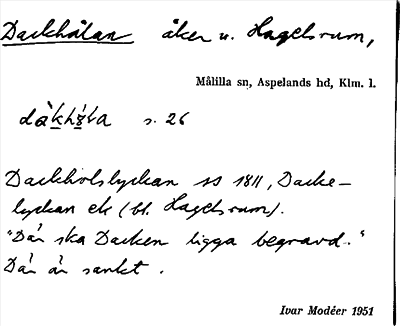 Dackhålan åker u. Hagelsrum,
Målilla sn, Aspelands hd, Klm. l.
s. 26
Dackholslyckan ss 1811, Dacke-
lyckan ek (bl. Hagelsrum).
"Där ska Dacken ligga begravd."
Där är sankt.
Ivar Modéer 1951